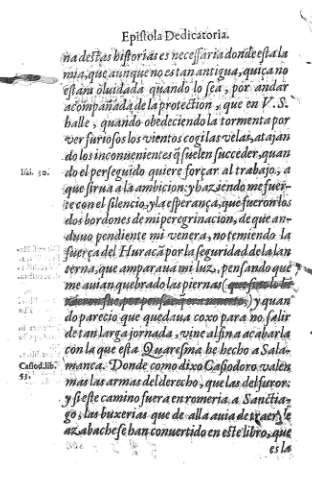 Epistola Dedicatoria.
na destas historias es necessaria donde esta la
mia, que aunque no es tan antigua, quiça no
estara oluidada quando lo sea, por andar
acompañada de la protection, que en V. S.
halle, quando obedeciendo la tormenta por
ver furiosos los vientos cogi las velas, atajan
do los inconuenientes q̃ suelen succeder, quan
do el perseguido quiere forçar al trabajo, a
que sirua a la ambicion: y haziendome fuer-
te con el silencio, y la esperança, que fueron los
dos bordones de mi peregrinacion, de que an-
duuo pendiente mi venera, no temiendo la
fuerça del Huracã por la seguridad de la lan
terna, que amparaua mi luz, pensando que
me auian quebrado las piernas (
) y quan
do parecio que quedaua coxo para no salir
de tan larga jornada, vine al fin a acabarla
con la que esta Quaresma he hecho a Sala-
manca. Donde como dixo Casiodoro valen
mas las armas del derecho, que las del furor:
y si este camino fuera en romeria a Sanctia-
go, las buxerias que de alla auia de traer de
azabache se han conuertido en este libro, que
es la
Casiod. lib.